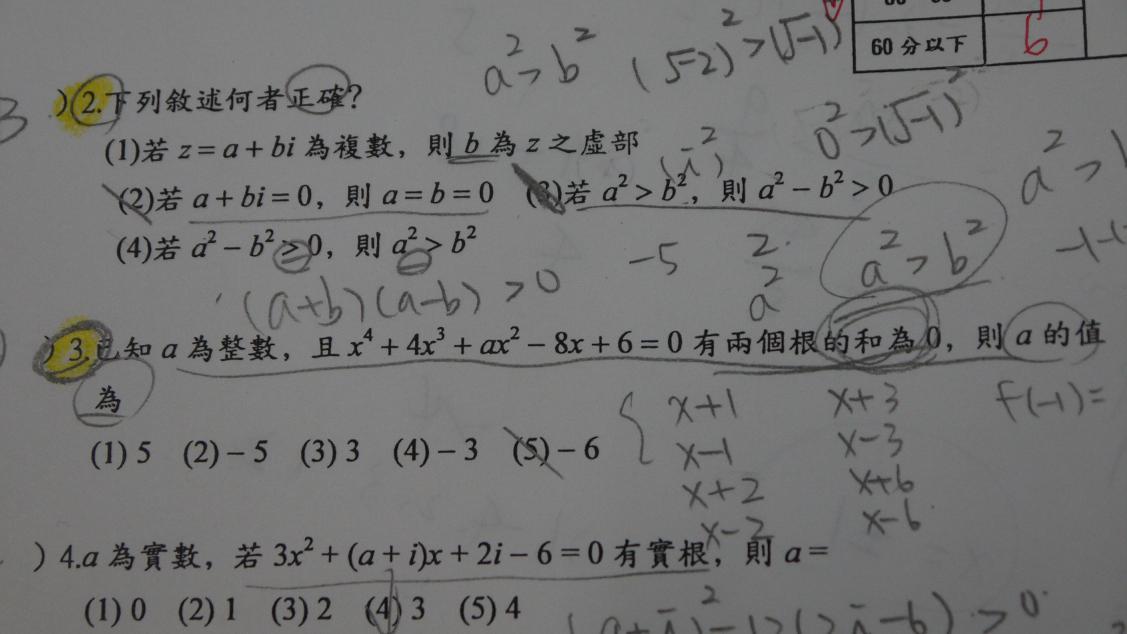 60分以下 6
a²>b² (√-2)²>(√-1)²
)2.下列敘述何者正確?
0²>(√-1)²
(1)若 z=a+bi 為複數,則 b 為 z 之虛部
(i)²
(2)若 a+bi=0,則 a=b=0 (3)若 a²>b²,則 a²-b²>0
(4)若 a²-b²>0,則 a²>b²
-5 2 a²>b²
a²
(a+b)(a-b)>0
)3.已知 a 為整數,且 x⁴+4x³+ax²-8x+6=0 有兩個根的和為 0,則 a 的值
為
x+1 x+3 f(-1)=
(1) 5 (2)-5 (3) 3 (4)-3 (5)-6
x-1 x-3
x+2 x+6
x-2 x-6
)4.a 為實數,若 3x²+(a+i)x+2i-6=0 有實根,則 a=
(1) 0 (2) 1 (3) 2 (4) 3 (5) 4